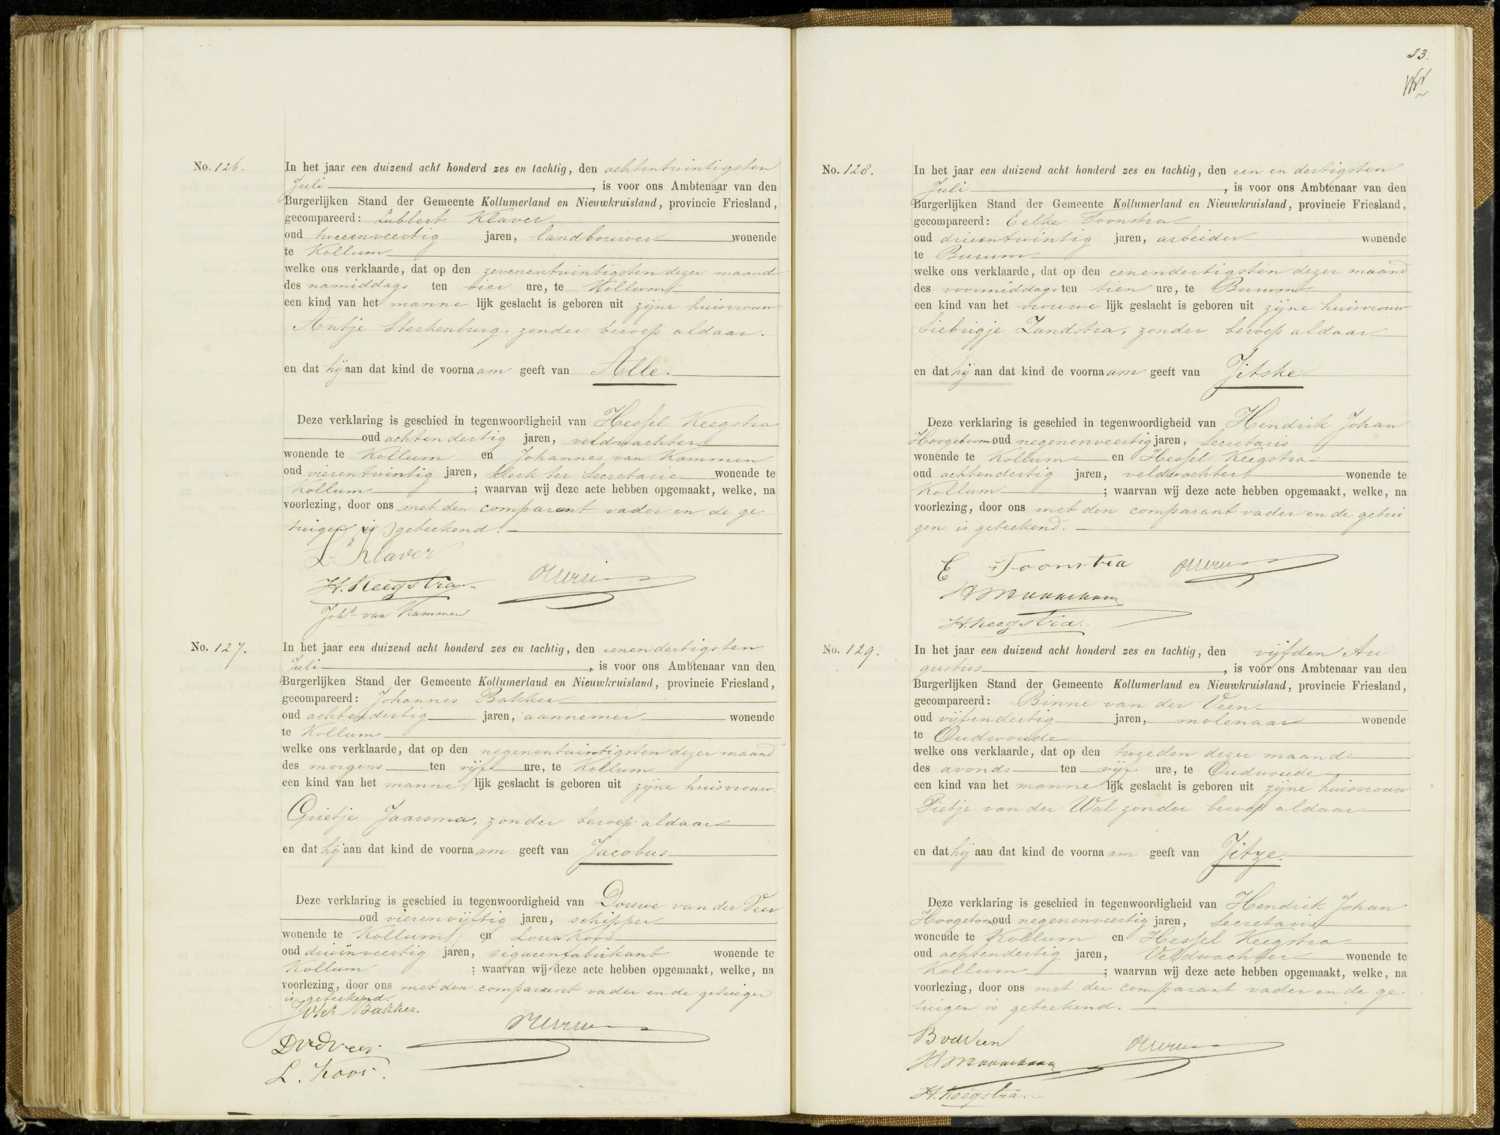 No. 126. In het jaar een duizend acht honderd zes en tachtig, den achtentwintigsten
Juli, is voor ons Ambtenaar van den
Burgerlijken Stand der Gemeente Kollumerland en Nieuwkruisland, provincie Friesland,
gecompareerd: Lubbert Klaver
oud tweeenveertig jaren, landbouwer wonende
te Kollum
welke ons verklaarde, dat op den zevenentwintigsten dezer maand
des namiddags ten vier ure, te Kollum
een kind van het mannelijk geslacht is geboren uit zijne huisvrouw
Antje Sterkenburg, zonder beroep aldaar.
en dat hij aan dat kind de voornaam geeft van Alle.
Deze verklaring is geschied in tegenwoordigheid van Hessel Keegstra
oud achtendertig jaren, veldwachter
wonende te Kollum en Johannes van Kammen
oud vierentwintig jaren, klerk ter Secretarie wonende te
Kollum; waarvan wij deze acte hebben opgemaakt, welke, na
voorlezing, door ons met den comparant vader en de ge-
tuigen is geteekend.
L. Klaver
H. Keegstra
Johs van Kammen
No. 127. In het jaar een duizend acht honderd zes en tachtig, den eenendertigsten
Juli, is voor ons Ambtenaar van den
Burgerlijken Stand der Gemeente Kollumerland en Nieuwkruisland, provincie Friesland,
gecompareerd: Johannes Bakker
oud achtendertig jaren, aannemer wonende
te Kollum
welke ons verklaarde, dat op den negenentwintigsten dezer maand
des morgens ten vijf ure, te Kollum
een kind van het mannelijk geslacht is geboren uit zijne huisvrouw
Grietje Jaarsma, zonder beroep aldaar
en dat hij aan dat kind de voornaam geeft van Jacobus
Deze verklaring is geschied in tegenwoordigheid van Douwe van der Veer
oud vierenvijftig jaren, schipper
wonende te Kollum en Louw Koos
oud drieenveertig jaren, sigarenfabrikant wonende te
Kollum; waarvan wij deze acte hebben opgemaakt, welke, na
voorlezing, door ons met den comparant vader en de getuigen
is geteekend.
Bakker.
DvdVeer
L. Koos.
23.
No. 128. In het jaar een duizend acht honderd zes en tachtig, den een en dertigsten
Juli, is voor ons Ambtenaar van den
Burgerlijken Stand der Gemeente Kollumerland en Nieuwkruisland, provincie Friesland,
gecompareerd: Eelke Toonstra
oud drieentwintig jaren, arbeider wonende
te Burum
welke ons verklaarde, dat op den eenendertigsten dezer maand
des voormiddags ten tien ure, te Burum
een kind van het vrouwelijk geslacht is geboren uit zijne huisvrouw
Liebrigje Zandstra, zonder beroep aldaar
en dat hij aan dat kind de voornaam geeft van Jitske
Deze verklaring is geschied in tegenwoordigheid van Hendrik Johan
oud negenenveertig jaren, Secretaris
wonende te Kollum en Hessel Keegstra
oud achtendertig jaren, veldwachter wonende te
Kollum; waarvan wij deze acte hebben opgemaakt, welke, na
voorlezing, door ons met den comparant vader en de getui
gen is geteekend.
E Toonstra
H. Keegstra.
No. 129. In het jaar een duizend acht honderd zes en tachtig, den vijfden Au
gustus, is voor ons Ambtenaar van den
Burgerlijken Stand der Gemeente Kollumerland en Nieuwkruisland, provincie Friesland,
gecompareerd: Binne van der Veen
oud vijfendertig jaren, molenaar wonende
te Oudwoude
welke ons verklaarde, dat op den tweeden dezer maand
des avonds ten vijf ure, te Oudwoude
een kind van het mannelijk geslacht is geboren uit zijne huisvrouw
Pietje van der Wal zonder beroep aldaar
en dat hij aan dat kind de voornaam geeft van Jitze.
Deze verklaring is geschied in tegenwoordigheid van Hendrik Johan
oud negenenveertig jaren, Secretaris
wonende te Kollum en Hessel Keegstra
oud achtendertig jaren, Veldwachter wonende te
Kollum; waarvan wij deze acte hebben opgemaakt, welke, na
voorlezing, door ons met der comparant vader en de ge-
tuigen is geteekend.
BvdVeen
H. Keegstra.